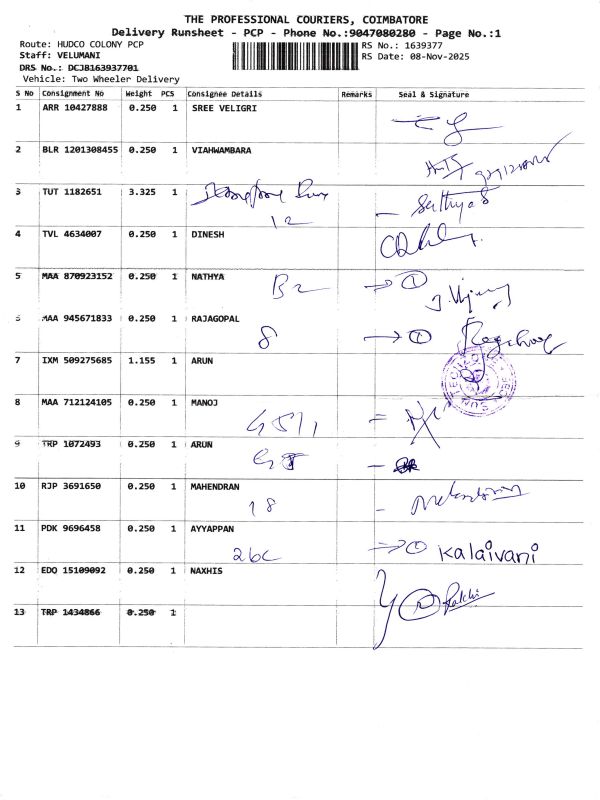 THE PROFESSIONAL COURIERS, COIMBATORE
Delivery Runsheet - PCP - Phone No.:9047080280 - Page No.:1
Route: HUDCO COLONY PCP RS No.: 1639377
Staff: VELUMANI RS Date: 08-Nov-2025
DRS No.: DCJB163937701
Vehicle: Two Wheeler Delivery
S No Consignment No Weight PCS Consignee Details Remarks Seal & Signature
1 ARR 10427888 0.250 1 SREE VELIGRI
2 BLR 1201308455 0.250 1 VIAHWAMBARA
3 TUT 1182651 3.325 1 Sathya S
12
4 TVL 4634007 0.250 1 DINESH
5 MAA 870923152 0.250 1 NATHYA B2 → 1
6 MAA 945671833 0.250 1 RAJAGOPAL 8 → 1
7 IXM 509275685 1.155 1 ARUN
8 MAA 712124105 0.250 1 MANOJ
9 TRP 1072493 0.250 1 ARUN
10 RJP 3691650 0.250 1 MAHENDRAN
18
11 PDK 9696458 0.250 1 AYYAPPAN
26C → 1 Kalaivani
12 EDQ 15109092 0.250 1 NAXHIS
13 TRP 1434866 0.250 1